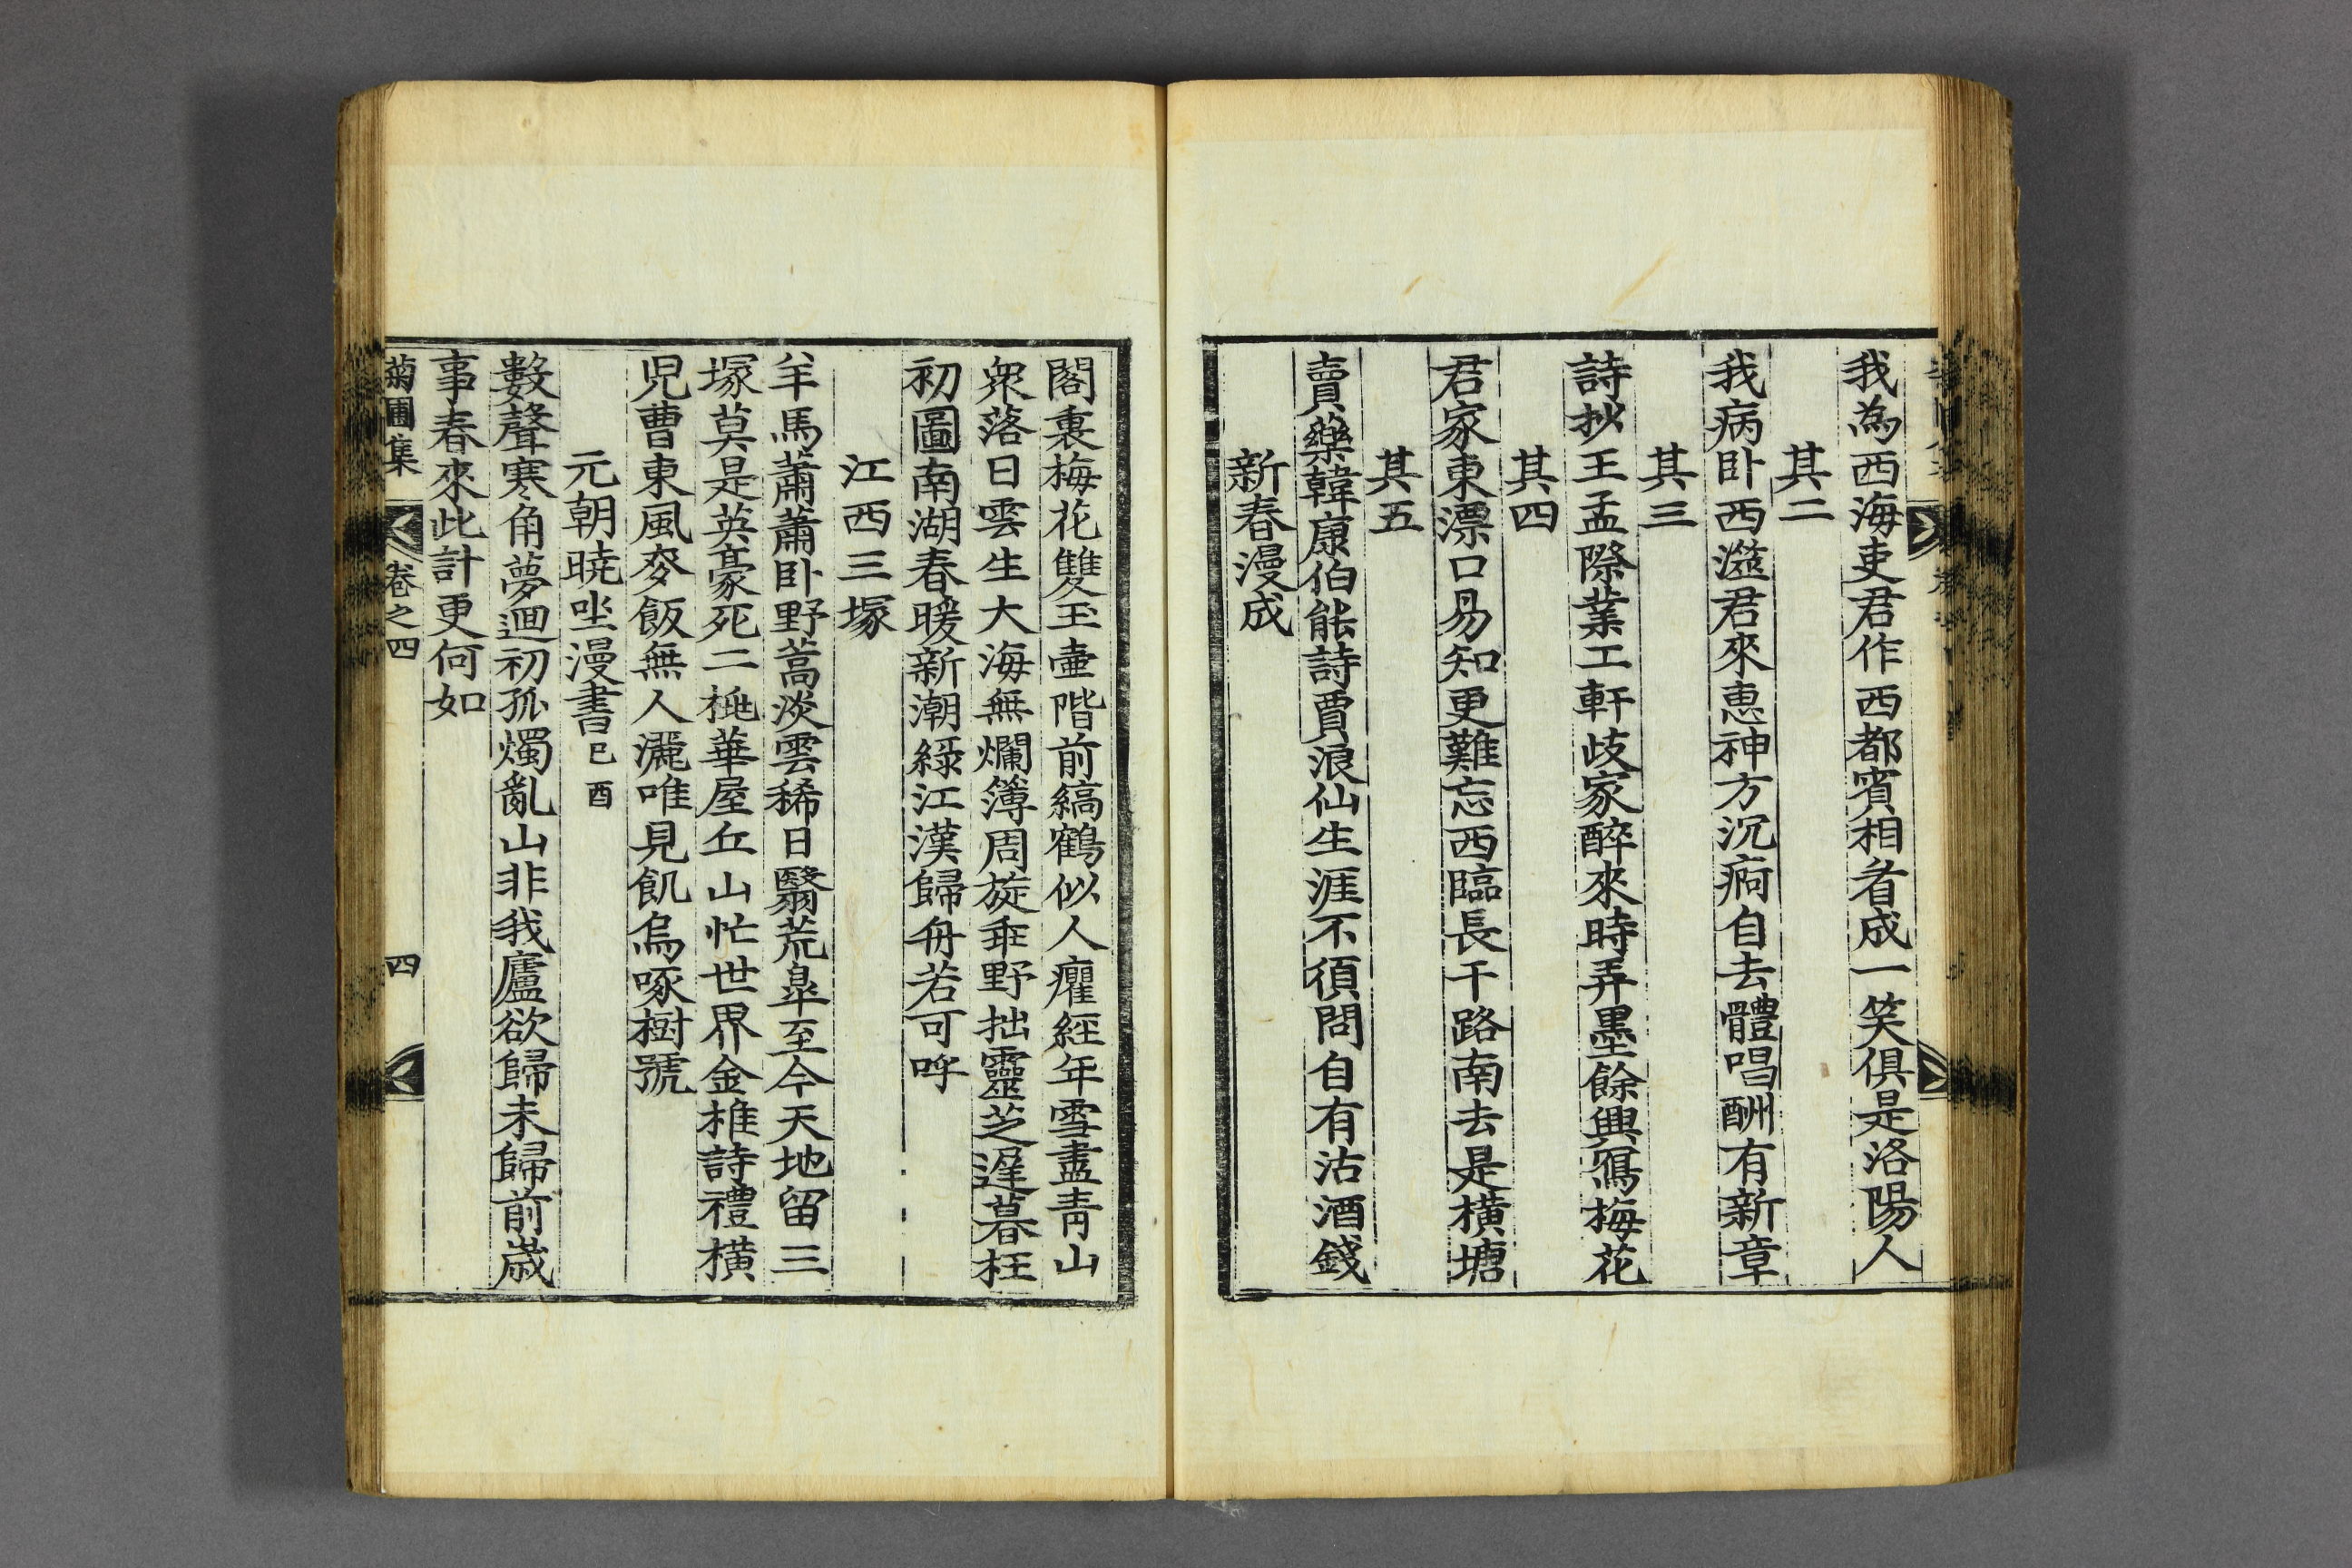 我為西海吏君作西都賓相看成一笑俱是洛陽人
其二
我病卧西澨君來惠神方沉痾自去體唱酬有新章
其三
詩抄王孟際業工軒歧家醉來時弄墨餘興寫梅花
其四
君家東漂口易知更難忘西臨長干路南去是橫塘
其五
賣藥韓康伯能詩賈浪仙生涯不須問自有沽酒錢
新春漫成
閣裏梅花雙玉壷階前縞鶴似人癯經年雪盡靑山
衆落日雲生大海無爛簿周旋乖野拙靈芝遲暮枉
初圖南湖春暖新潮綠江漢歸舟若可呼
江西三塚
羊馬蕭蕭卧野蒿淡雲稀日翳荒臯至今天地留三
塚莫是英豪死二桃華屋丘山忙世界金椎詩禮橫
児曹東風麥飯無人灑唯見飢烏啄樹號
元朝曉坐漫書己酉
數聲寒角夢迴初孤燭亂山非我廬欲歸未歸前歲
事春來此計更何如
菊圃集 卷之四 四